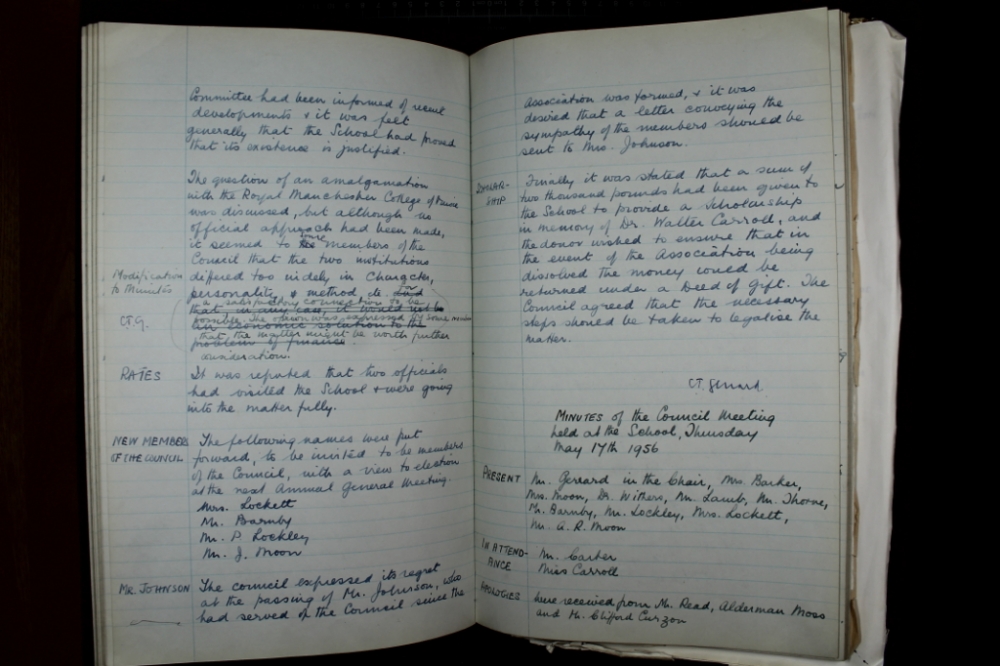 Committee had been informed of recent
developments & it was felt
generally that the School had proved
that its existence is justified.
The question of an amalgamation
with the Royal Manchester College of Music
was discussed, but although no
official approach had been made,
it seemed to some members of the
Council that the two institutions
differed too widely in character,
Modification
to Minutes
personality & method, etc. for
a satisfactory connection to be
that, in any case, it would not be
possible. The view was expressed by some members
an economic solution to the
that the matter might be worth further
problem of finance.
consideration.
C.T.G.
RATES
It was reported that two officials
had visited the School & were going
into the matter fully.
NEW MEMBERS
OF THE COUNCIL
The following names were put
forward, to be invited to be members
of the Council, with a view to election
at the next Annual General Meeting.
Mrs. Lockett
Mr. Barnby
Mr. P. Lockley
Mr. J. Moon
MR. JOHNSON
The council expressed its regret
at the passing of Mr. Johnson, who
had served on the Council since the
Association was formed, & it was
desired that a letter conveying the
sympathy of the members should be
sent to Mrs. Johnson.
SCHOLAR-
SHIP
Finally it was stated that a sum of
two thousand pounds had been given to
the School to provide a Scholarship
in memory of Dr. Walter Carroll, and
the donor wished to ensure that in
the event of the Association being
dissolved the money could be
returned under a Deed of Gift. The
Council agreed that the necessary
steps should be taken to legalise the
matter.
C.T. Gerrard
MINUTES of the Council Meeting
held at the School, Thursday
May 17th 1956
PRESENT
Mr. Gerrard in the Chair, Mrs. Barker,
Mrs. Moon, Dr. Withers, Mr. Lamb, Mr. Thorne,
Mr. Barnby, Mr. Lockley, Mrs. Lockett,
Mr. A. R. Moon
IN ATTEND-
ANCE
Mr. Carter
Miss Carroll
APOLOGIES
were received from Mr. Read, Alderman Moss
and Mr. Clifford Curzon